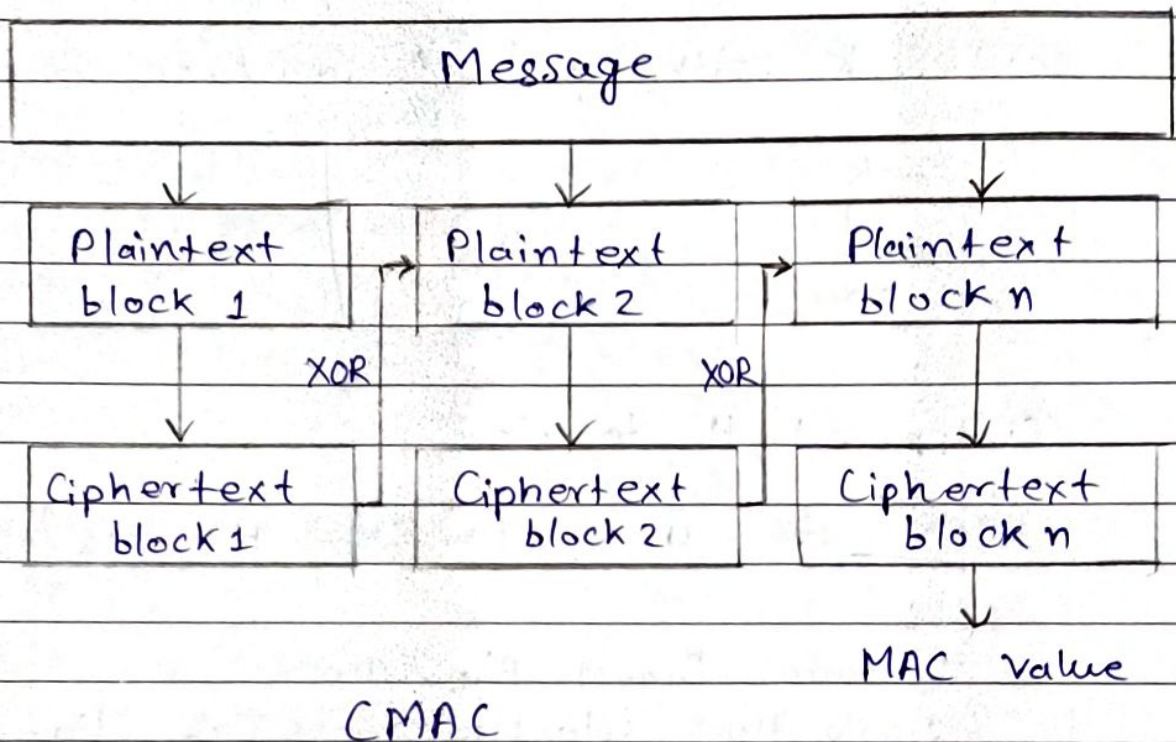 Message
Plaintext block 1
Plaintext block 2
Plaintext block n
XOR
XOR
Ciphertext block 1
Ciphertext block 2
Ciphertext block n
MAC value
CMAC